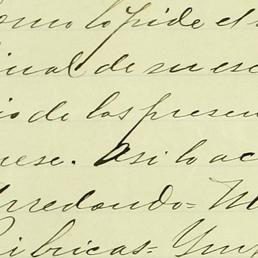 como lo pide el
inal de su es
io de los presen
ese. Asi lo ac
rredondo=M
Ribricas=Ym